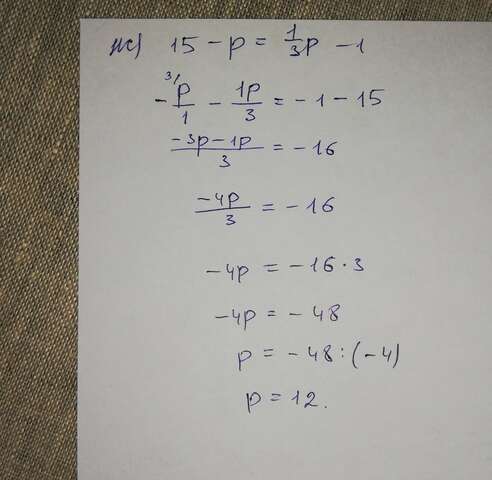 ж) 15 - p = 1/3 p - 1
- ³⁄p/1 - 1p/3 = - 1 - 15
-3p - 1p/3 = - 16
-4p/3 = - 16
-4p = - 16 · 3
-4p = - 48
p = - 48 : (-4)
p = 12.